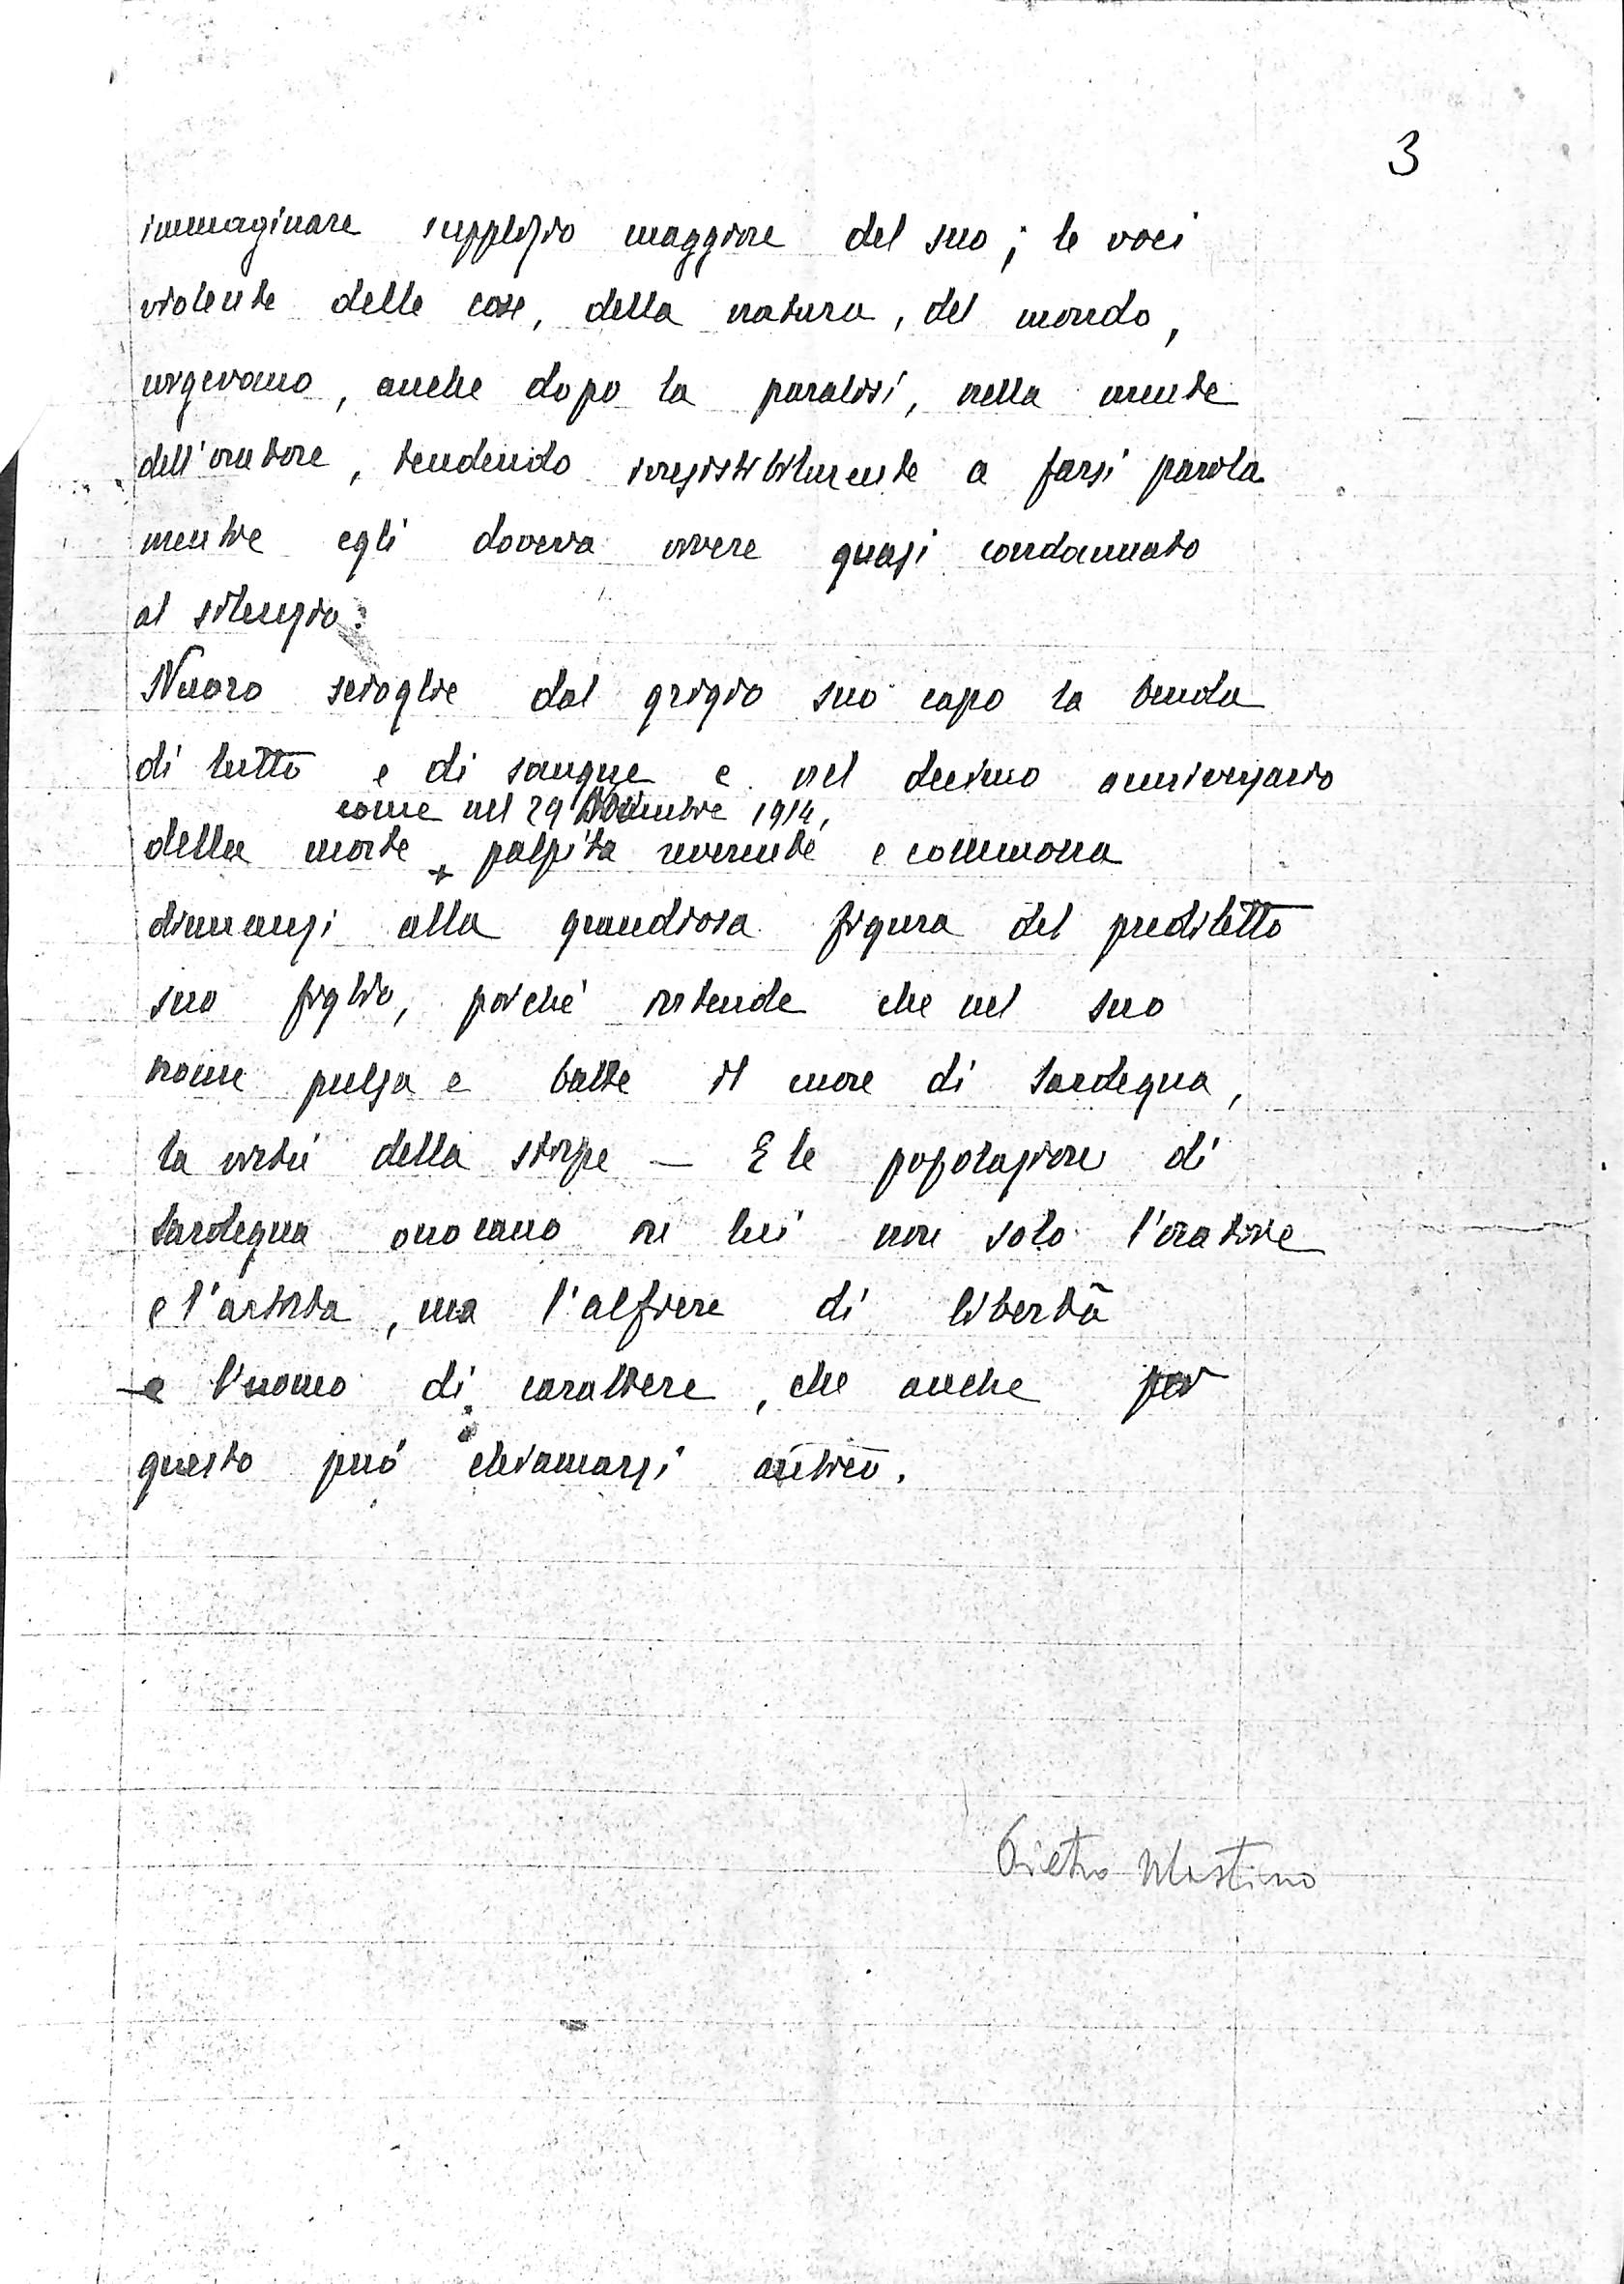 3
immaginare supplizio maggiore del suo; le voci
violente delle cose, della natura, del mondo,
urgevano, anche dopo la paralisi, nella mente
dell'oratore, tendendo irresistibilmente a farsi parola
mentre egli doveva vivere quasi condannato
al silenzio.
Nuoro scioglie dal grigio suo capo la benda
di lutto e di sangue e nel decimo anniversario
come nel 29 Dicembre 1914,
della morte + palpita reverente e commossa
dinnanzi alla grandiosa figura del prediletto
suo figlio, poiché intende che nel suo
nome pulsa e batte il cuore di Sardegna,
la virtù della stirpe — E le popolazioni di
Sardegna onorano in lui non solo l'oratore
e l'artista, ma l'alfiere di libertà
e l'uomo di carattere, che anche per
questo può chiamarsi antico.
Pietro Mastino